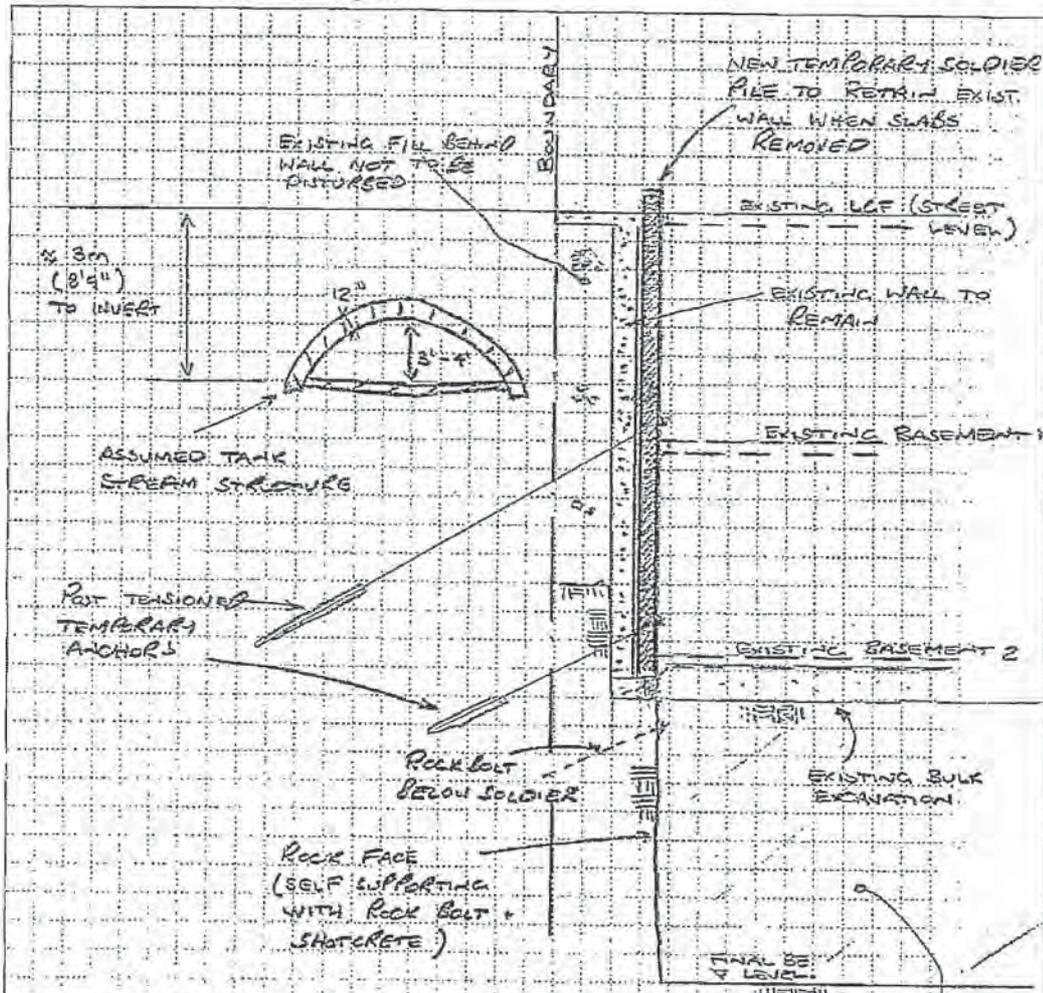 BOUNDARY
NEW TEMPORARY SOLDIER
PILE TO RETAIN EXIST.
WALL WHEN SLABS
REMOVED
EXISTING FILL BEHIND
WALL NOT TO BE
DISTURBED
EXISTING LGF (STREET
LEVEL)
≈ 3m
(8'9")
TO INVERT
12"
3'-4'
EXISTING WALL TO
REMAIN
EXISTING BASEMENT
ASSUMED TANK
STREAM STRUCTURE
POST TENSIONED
TEMPORARY
ANCHORS
EXISTING BASEMENT 2
ROCK BOLT
BELOW SOLDIER
EXISTING BULK
EXCAVATION
ROCK FACE
(SELF SUPPORTING
WITH ROCK BOLT +
SHOTCRETE)
FINAL BE
LEVEL